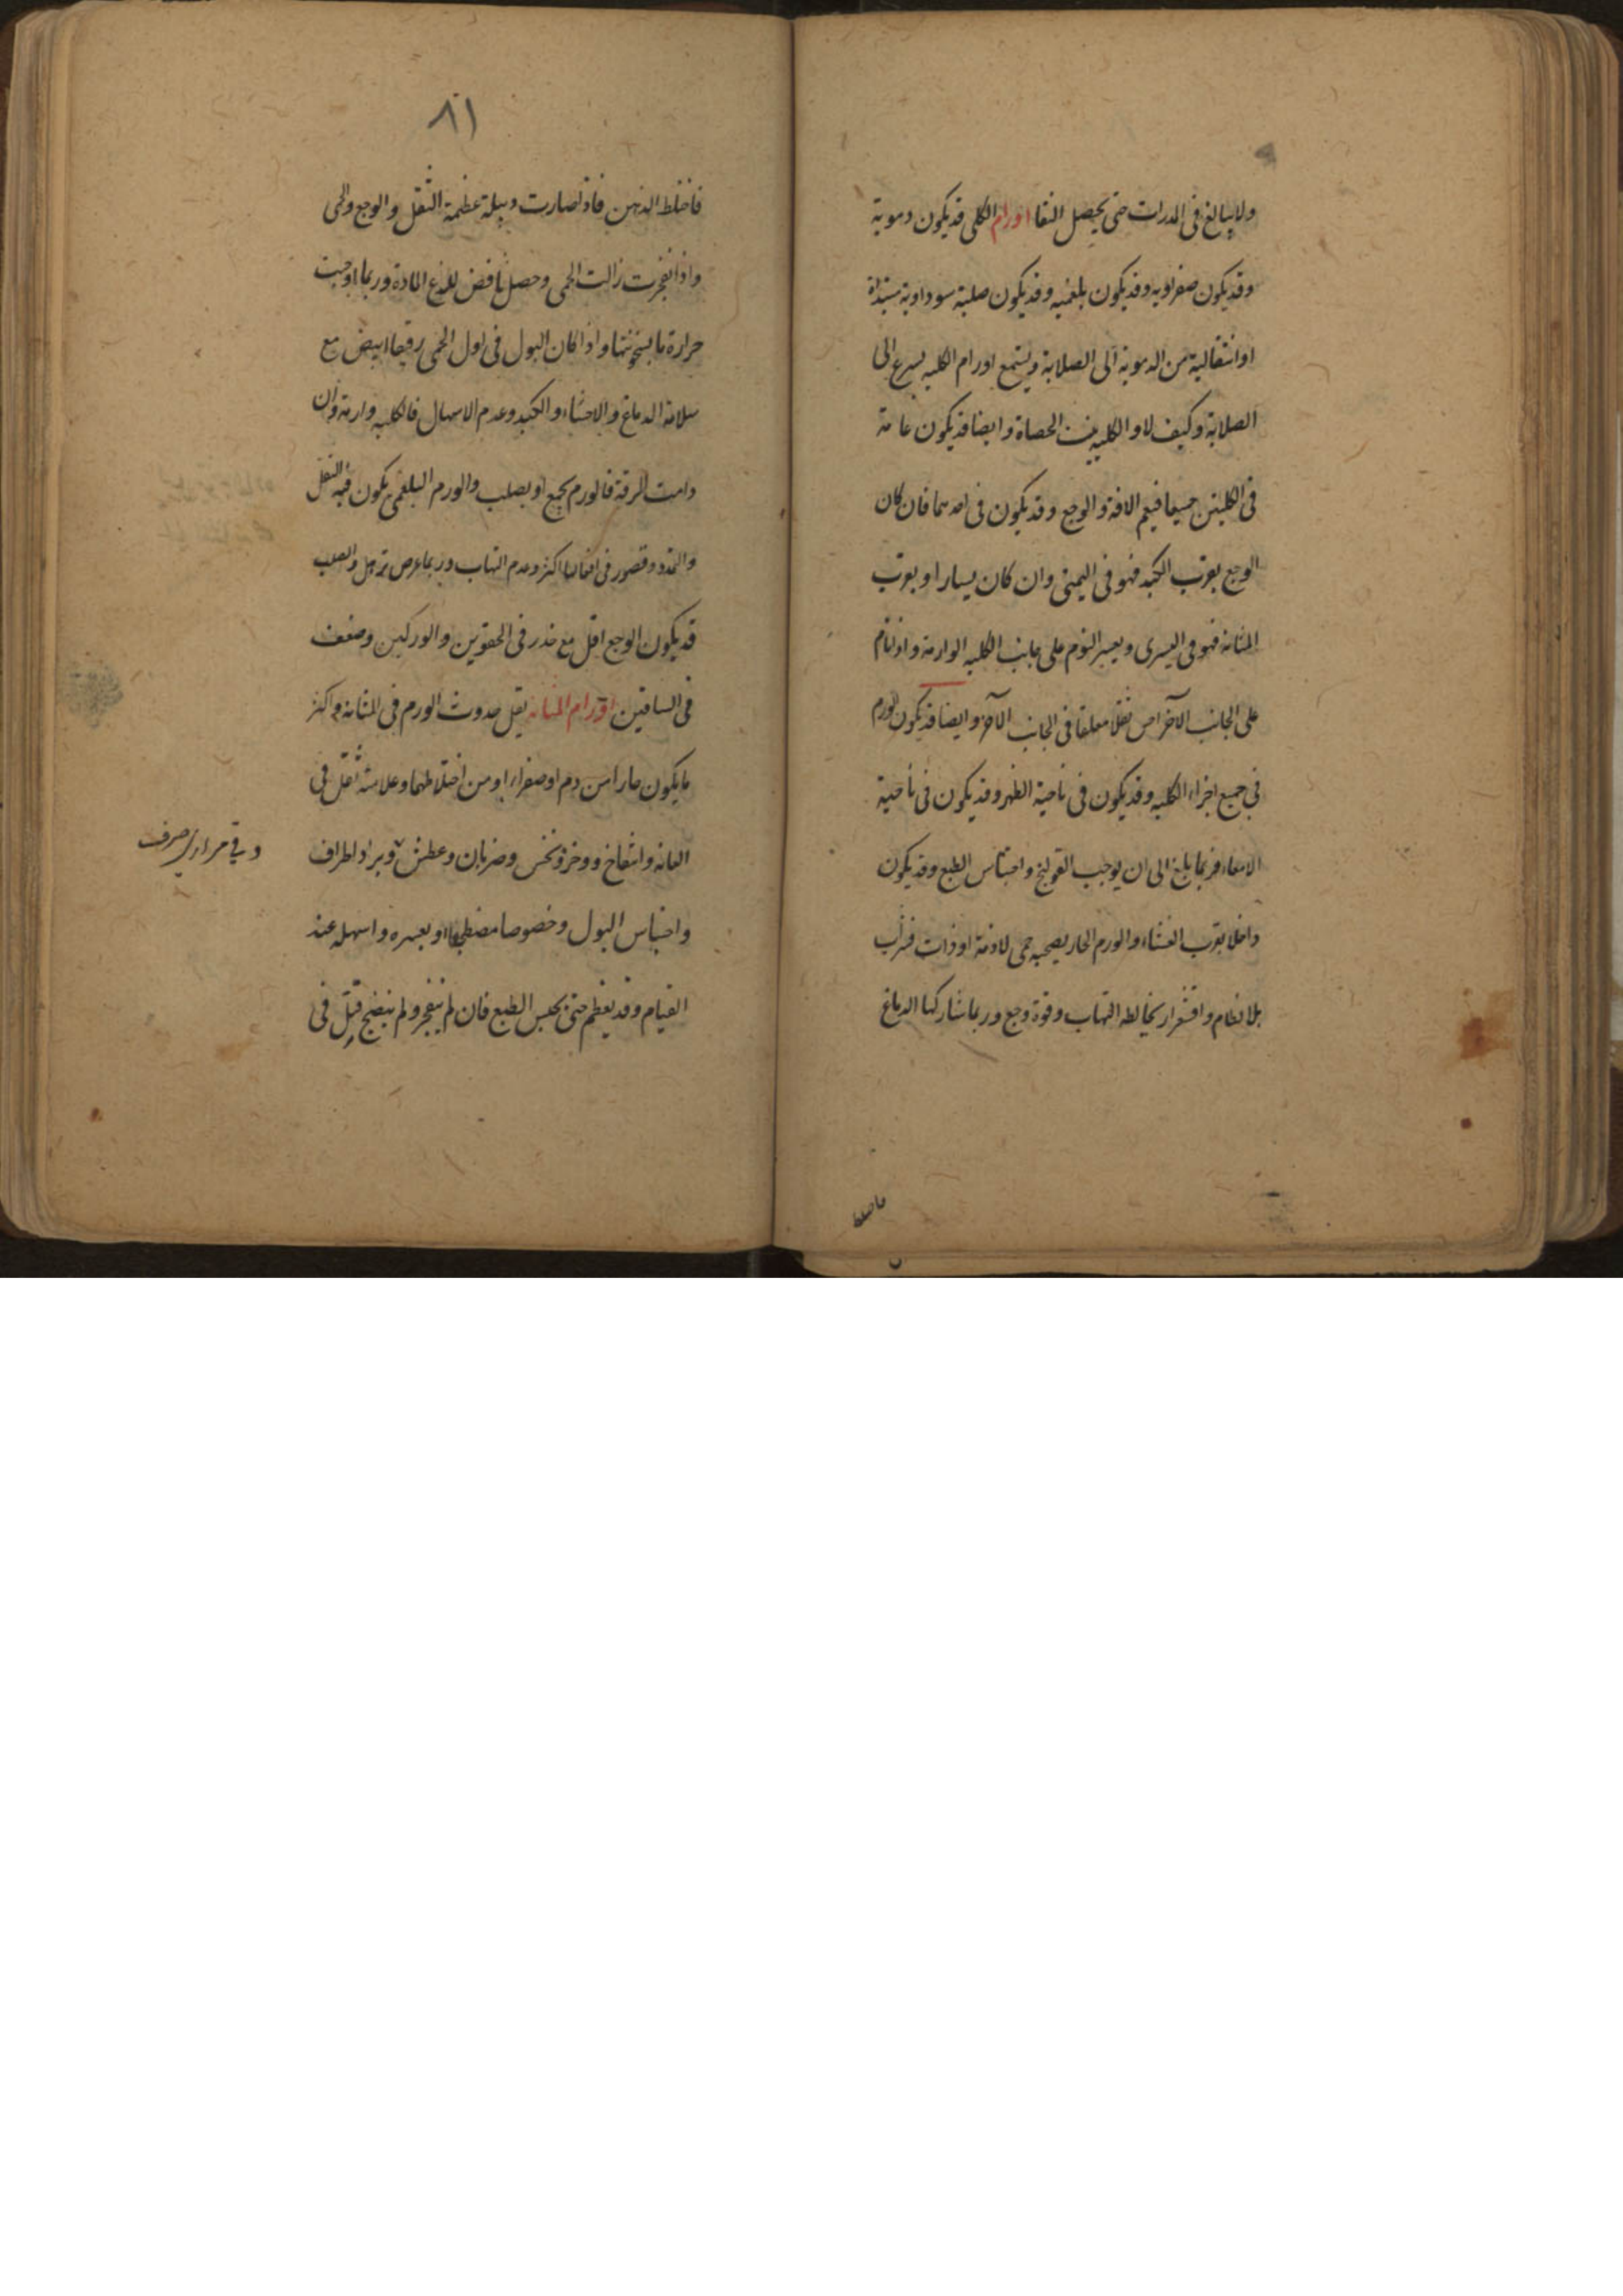 ولا يبالغ فى المدرات حتى يحصل النقا اورام الكلى قد يكون دموية
وقد يكون صفراويه وقد يكون بلغميه وقد يكون صلبة سوداوية مبتداة
او انتقالية من الدموية الى الصلابة وجميع اورام الكليه يسرع الى
الصلابة وكيف لا والكليه بيت الحصاة وايضا قد يكون عامة
فى الكليتين جميعا فيعم الافة والوجع وقد يكون فى احدهما فان كان
الوجع بقرب الكبد فهو فى اليمنى وان كان يسارا او بقرب
المثانة فهو فى اليسرى ويعسر النوم على جانب الكليه الوارمة واذا نام
على الجانب الآخر احس ثقلا معلقا فى الجانب الآخر وايضا قد يكون الورم
فى جميع اجزاء الكليه وقد يكون فى ناحية الظهر وقد يكون فى ناحية
الامعاء فربما بلغ الى ان يوجب القولنج واحتباس الطبع وقد يكون
داخلا بقرب الغشاء والورم الحار يصحبه حمى لازمة او ذات فترات
بلا نظام واقشعرار يخالطه التهاب وقوة وجع وربما شاركها الدماغ
فاختلط
٨١
فاختلط الذهن فاذا صارت دبيلة عظمة الثقل والوجع والحمى
واذا انفجرت زالت الحمى وحصل نافض للذع المادة وربما اوجبت
حرارة ما بسخونتها واذا كان البول فى اول الحمى رقيقا ابيض مع
سلامة الدماغ والاحشاء والكبد وعدم الاسهال فالكليه وارمة وان
دامت الرقة فالورم يجمع او يصلب والورم البلغمى يكون فيه الثقل
والتمدد وقصور فى افعالها اكثر وعدم التهاب وربما عرض ترهل والصلب
قد يكون الوجع اقل مع خدر فى الحقوين والوركين وضعف
فى الساقين اورام المثانه يقل حدوث الورم فى المثانة واكثر
ما يكون حارا من دم او صفراء او من اختلاطهما وعلامته ثقل فى
العانه وانتفاخ ووخز ونخس وضربان وعطش وبرد اطراف
وقى مرارى صرف
واحتباس البول وخصوصا مضطجعا او بعسره واسهله عند
القيام وقد يعظم حتى يحبس الطبع فان لم ينفجر ولم ينضج قتل فى